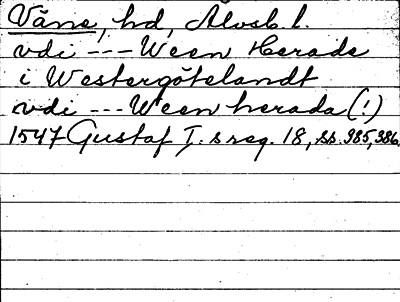 Väne, hd, Älvsb. l.
vdi --- Ween Herade
i Westergötelandt
vdi --- Ween herada (!)
1547 Gustaf I:s reg. 18, ss. 385, 386.